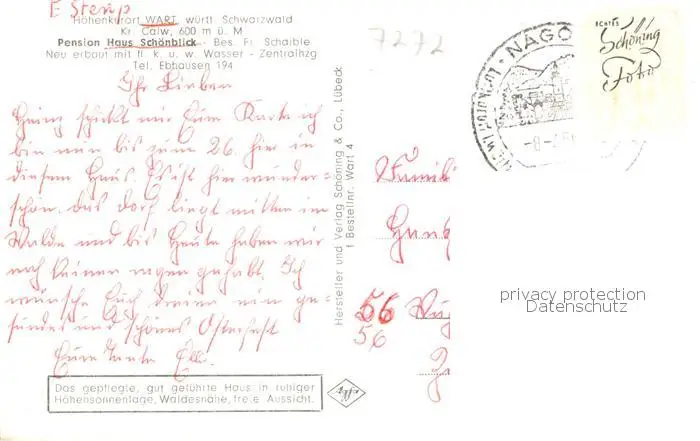 E Stemp
Höhenkurort WART württ Schwarzwald
Kr. Calw, 600 m ü. M
Pension Haus Schönblick - Bes. Fr. Schaible
Neu erbaut mit fl. k. u. w. Wasser - Zentralhzg
Tel. Ebhausen 194
7272
NAGO
-8.-4.
ECHTES
Schöning
Foto
Ihr Lieben
Heinz schickt mir Eure Karte ich
bin nun bis zum 26. hier in
diesem Haus. Es ist hier wunder-
schön. Das Dorf liegt mitten im
Walde und bis Heute haben wir
noch keinen regen gehabt. Ich
wünsche Euch dreien ein ge-
sundes und schönes Osterfest
Eure Tante Elli.
Das gepflegte, gut geführte Haus in ruhiger
Höhensonnenlage, Waldesnähe, freie Aussicht.
Hersteller und Verlag Schöning & Co., Lübeck
Bestellnr. Wart 4
Agfa
Famili
56
56
privacy protection
Datenschutz